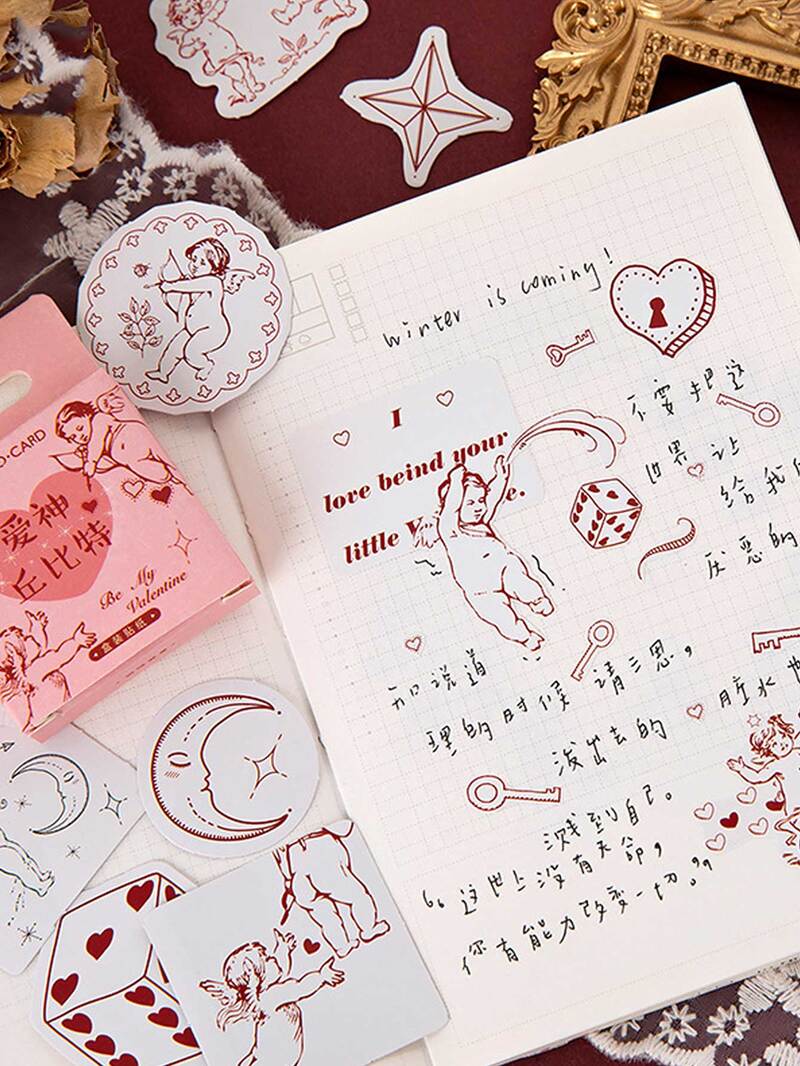 winter is coming!
I
love beind your
little
不要把这
世界让
给我们
厌恶的
和说道
理的时候请三思,
脏水
泼出去的
溅到自己。
“这世上没有天命,
你有能力改变一切。”
O·CARD
爱神
丘比特
Be My
Valentine
盒装贴纸